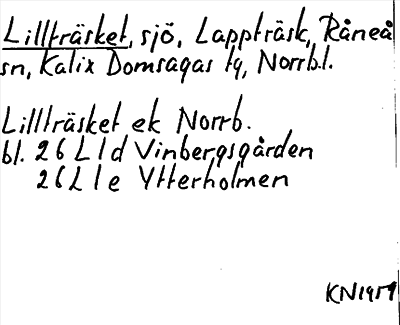 Lillträsket, sjö, Lappträsk, Råneå
sn, Kalix Domsagas tg, Norrb.l.
Lillträsket ek Norrb.
bl. 26 L 1d Vinbergsgården
26 L 1e Ytterholmen
KN1959